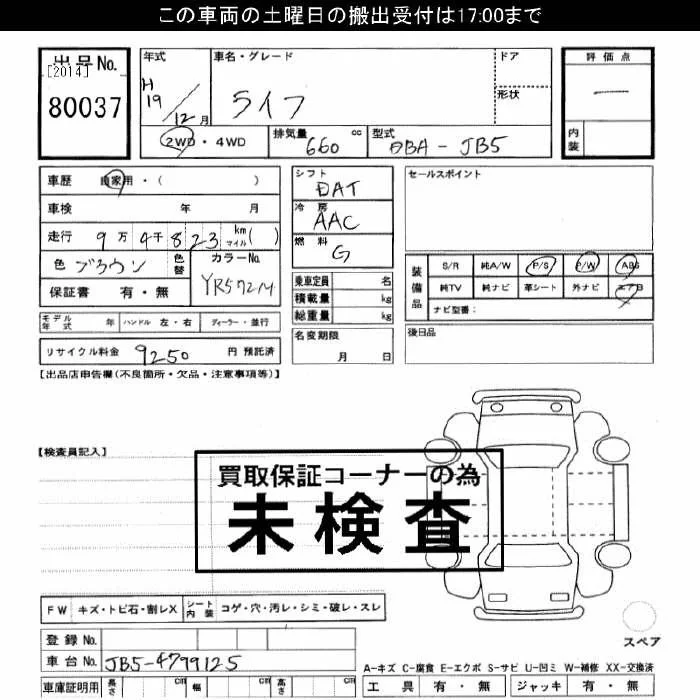 この車両の土曜日の搬出受付は17:00まで
出品No.
[2014]
80037
年式
H19/12月
車名・グレード
ライフ
ドア
形状
評価点
内装
2WD・4WD
排気量 660 cc
型式 DBA-JB5
車歴 自家用・( )
車検 年 月
走行 9万4千823 km マイル( )
色 ブラウン 色替
カラーNo. YR572M
保証書 有・無
シフト DAT
冷房 AAC
燃料 G
乗車定員 名
積載量 kg
総重量 kg
セールスポイント
装備品
S/R 純A/W P/S P/W ABS
純TV 純ナビ 革シート 外ナビ エアB
ナビ型番:
モデル年式 年 ハンドル 左・右 ディーラー・並行
名変期限
月 日
後日品
リサイクル料金 9250 円 預託済
【出品店申告欄(不良箇所・欠品・注意事項等)】
【検査員記入】
買取保証コーナーの為
未検査
FW キズ・トビ石・割レX シート内装 コゲ・穴・汚レ・シミ・破レ・スレ
登録No.
車台No. JB5-4799125
車庫証明用 長さ cm 幅 cm 高さ cm
スペア
A-キズ C-腐食 E-エクボ S-サビ U-凹ミ W-補修 XX-交換済
工具 有・無 ジャッキ 有・無